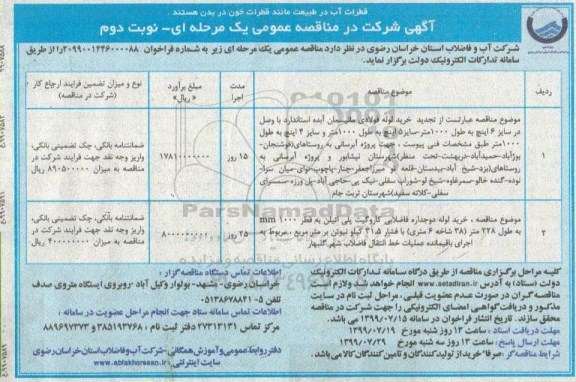 قطرات آب در طبیعت مانند قطرات خون در بدن هستند
آگهی شرکت در مناقصه عمومی یک مرحله ای- نوبت دوم
شرکت آب و فاضلاب استان خراسان رضوی در نظر دارد مناقصه عمومی یک مرحله ای زیر به شماره فراخوان ۲۰۹۹۰۰۱۴۴۶۰۰۰۰۸۸ را از طریق
سامانه تدارکات الکترونیک دولت برگزار نماید.
ردیف
موضوع مناقصه
مدت اجرا
مبلغ برآورد « ریال»
نوع و میزان تضمین فرایند ارجاع کار (شرکت در مناقصه)
۱
موضوع مناقصه عبارتست از تجدید خرید لوله فولادی مانیسمان آبده استاندارد با وصل
در سایز ۶ اینچ به طول ۱۰۰۰متر-سایز۵ اینچ به طول ۱۰۰۰متر و سایز ۴ اینچ به طول
۱۰۰۰متر طبق مشخصات فنی پیوست ، جهت پروژه آبرسانی به روستاهای(فوشنجان-
بوژآباد-حمیدآباد-دربهشت-تخت منظر)شهرستان نیشابور و پروژه آبرسانی به
روستاهای(یزد-شیخ آباد-بیدستان-قلعه نو
سفلی-کلاته سفید)شهرستان تربت جام
۱۵ روز
۱۷۸۱۰۰۰۰۰۰۰
ضمانتنامه بانکی، چک تضمینی بانکی،
واریز وجه نقد جهت فرایند شرکت در
مناقصه به میزان ۸۹۰۵۰۰۰۰۰ ریال
۲
موضوع مناقصه ، خرید لوله دوجداره فاضلابی کاروگیت پلی اتیلن به قطر ۱۰۰۰ mm
به طول ۲۲۸ متر (۳۸ شاخه ۶ متری) با فشار ۳۱.۵ کیلو نیوتن بر متر مربع ، مربوط به
اجرای باقیمانده عملیات خط انتقال فاضلاب شهر گلبهار
۲۵ روز
ضمانتنامه بانکی، چک تضمینی بانکی،
واریز وجه نقد جهت فرایند شرکت در
مناقصه به میزان ۴۰۰۰۰۰۰۰۰ ریال
ParsNamadData
پایگاه اطلاع رسانی مناقصه و مزایده
کلیه مراحل برگزاری مناقصه از طریق درگاه سامانه تدارکات الکترونیک
دولت (ستاد) به آدرس www.setadiran.ir انجام خواهد شد ولازم است
مناقصه گران در صورت عدم عضویت قبلی ، مراحل ثبت نام در سایت
مذکور و دریافت گواهی امضای الکترونیکی را جهت شرکت در مناقصه
محقق سازند. تاریخ انتشار فراخوان در سامانه ۱۳۹۹/۰۷/۱۵ می باشد.
مهلت دریافت اسناد : ساعت ۱۳ روز شنبه مورخ ۱۳۹۹/۰۷/۱۹
مهلت ارسال پاسخ: ساعت ۱۳ روز سه شنبه مورخ ۱۳۹۹/۰۷/۲۹
شرایط مناقصه گر :صرفا" خرید از تولیدکنندگان و تامین کنندگان کالا می باشد.
اطلاعات تماس دستگاه مناقصه گزار :
خراسان رضوی- مشهد- بولوار وکیل آباد -روبروی ایستگاه متروی صدف
تلفن ۵-۰۵۱۳۸۶۷۸۸۴۱
اطلاعات تماس سامانه ستاد جهت انجام مراحل عضویت در سامانه :
مرکز تماس ۲۷۳۱۳۱۳۱ دفتر ثبت نام : ۸۵۱۹۳۷۶۸ و ۸۸۹۶۹۷۳۷
دفتر روابط عمومی و آموزش همگانی -شرکت آب و فاضلاب استان خراسان رضوی
سایت اینترنتی : www.abfakhorasan.ir